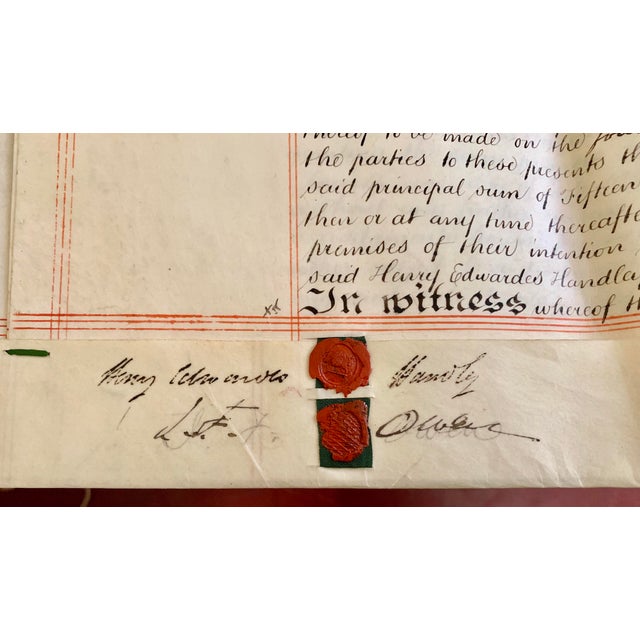 thereby to be made on the
the parties to these presents
said principal sum of Fifteen
than or at any time thereafter
premises of their intention
said Henry Edwardes Handley
In witness whereof
Henry Edwardes Handley
Owen